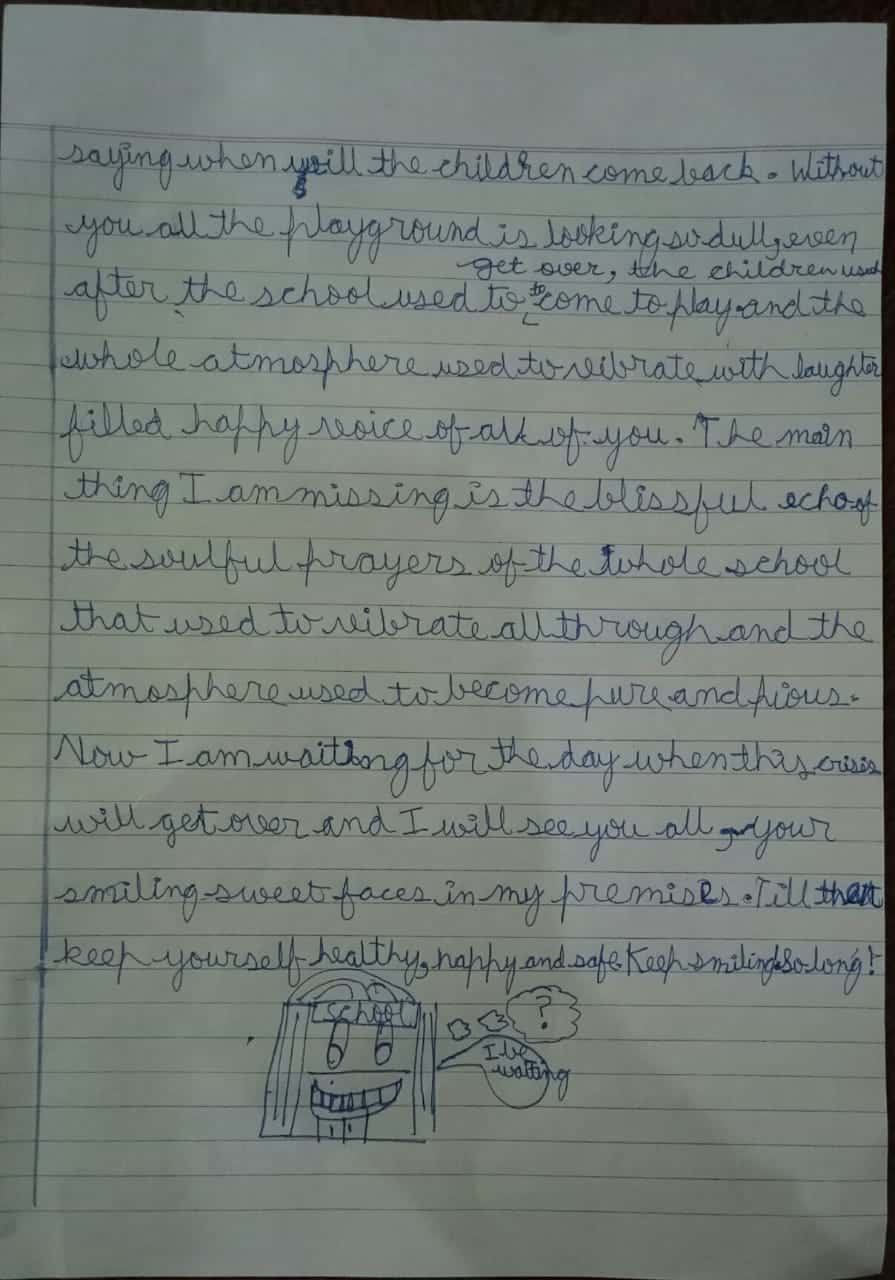 saying when will the children come back. Without
you all the playground is looking so dull, even
get over, the children used
after the school used to to come to play and the
whole atmosphere used to vibrate with laughter
filled happy voice of all of you. The main
thing I am missing is the blissful echo of
the soulful prayers of the whole school
that used to vibrate all through and the
atmosphere used to become pure and pious.
Now I am waiting for the day when this crisis
will get over and I will see you all, your
smiling sweet faces in my premises. Till that
keep yourself healthy, happy and safe. Keep smiling. So long!
School
?
I be
waiting